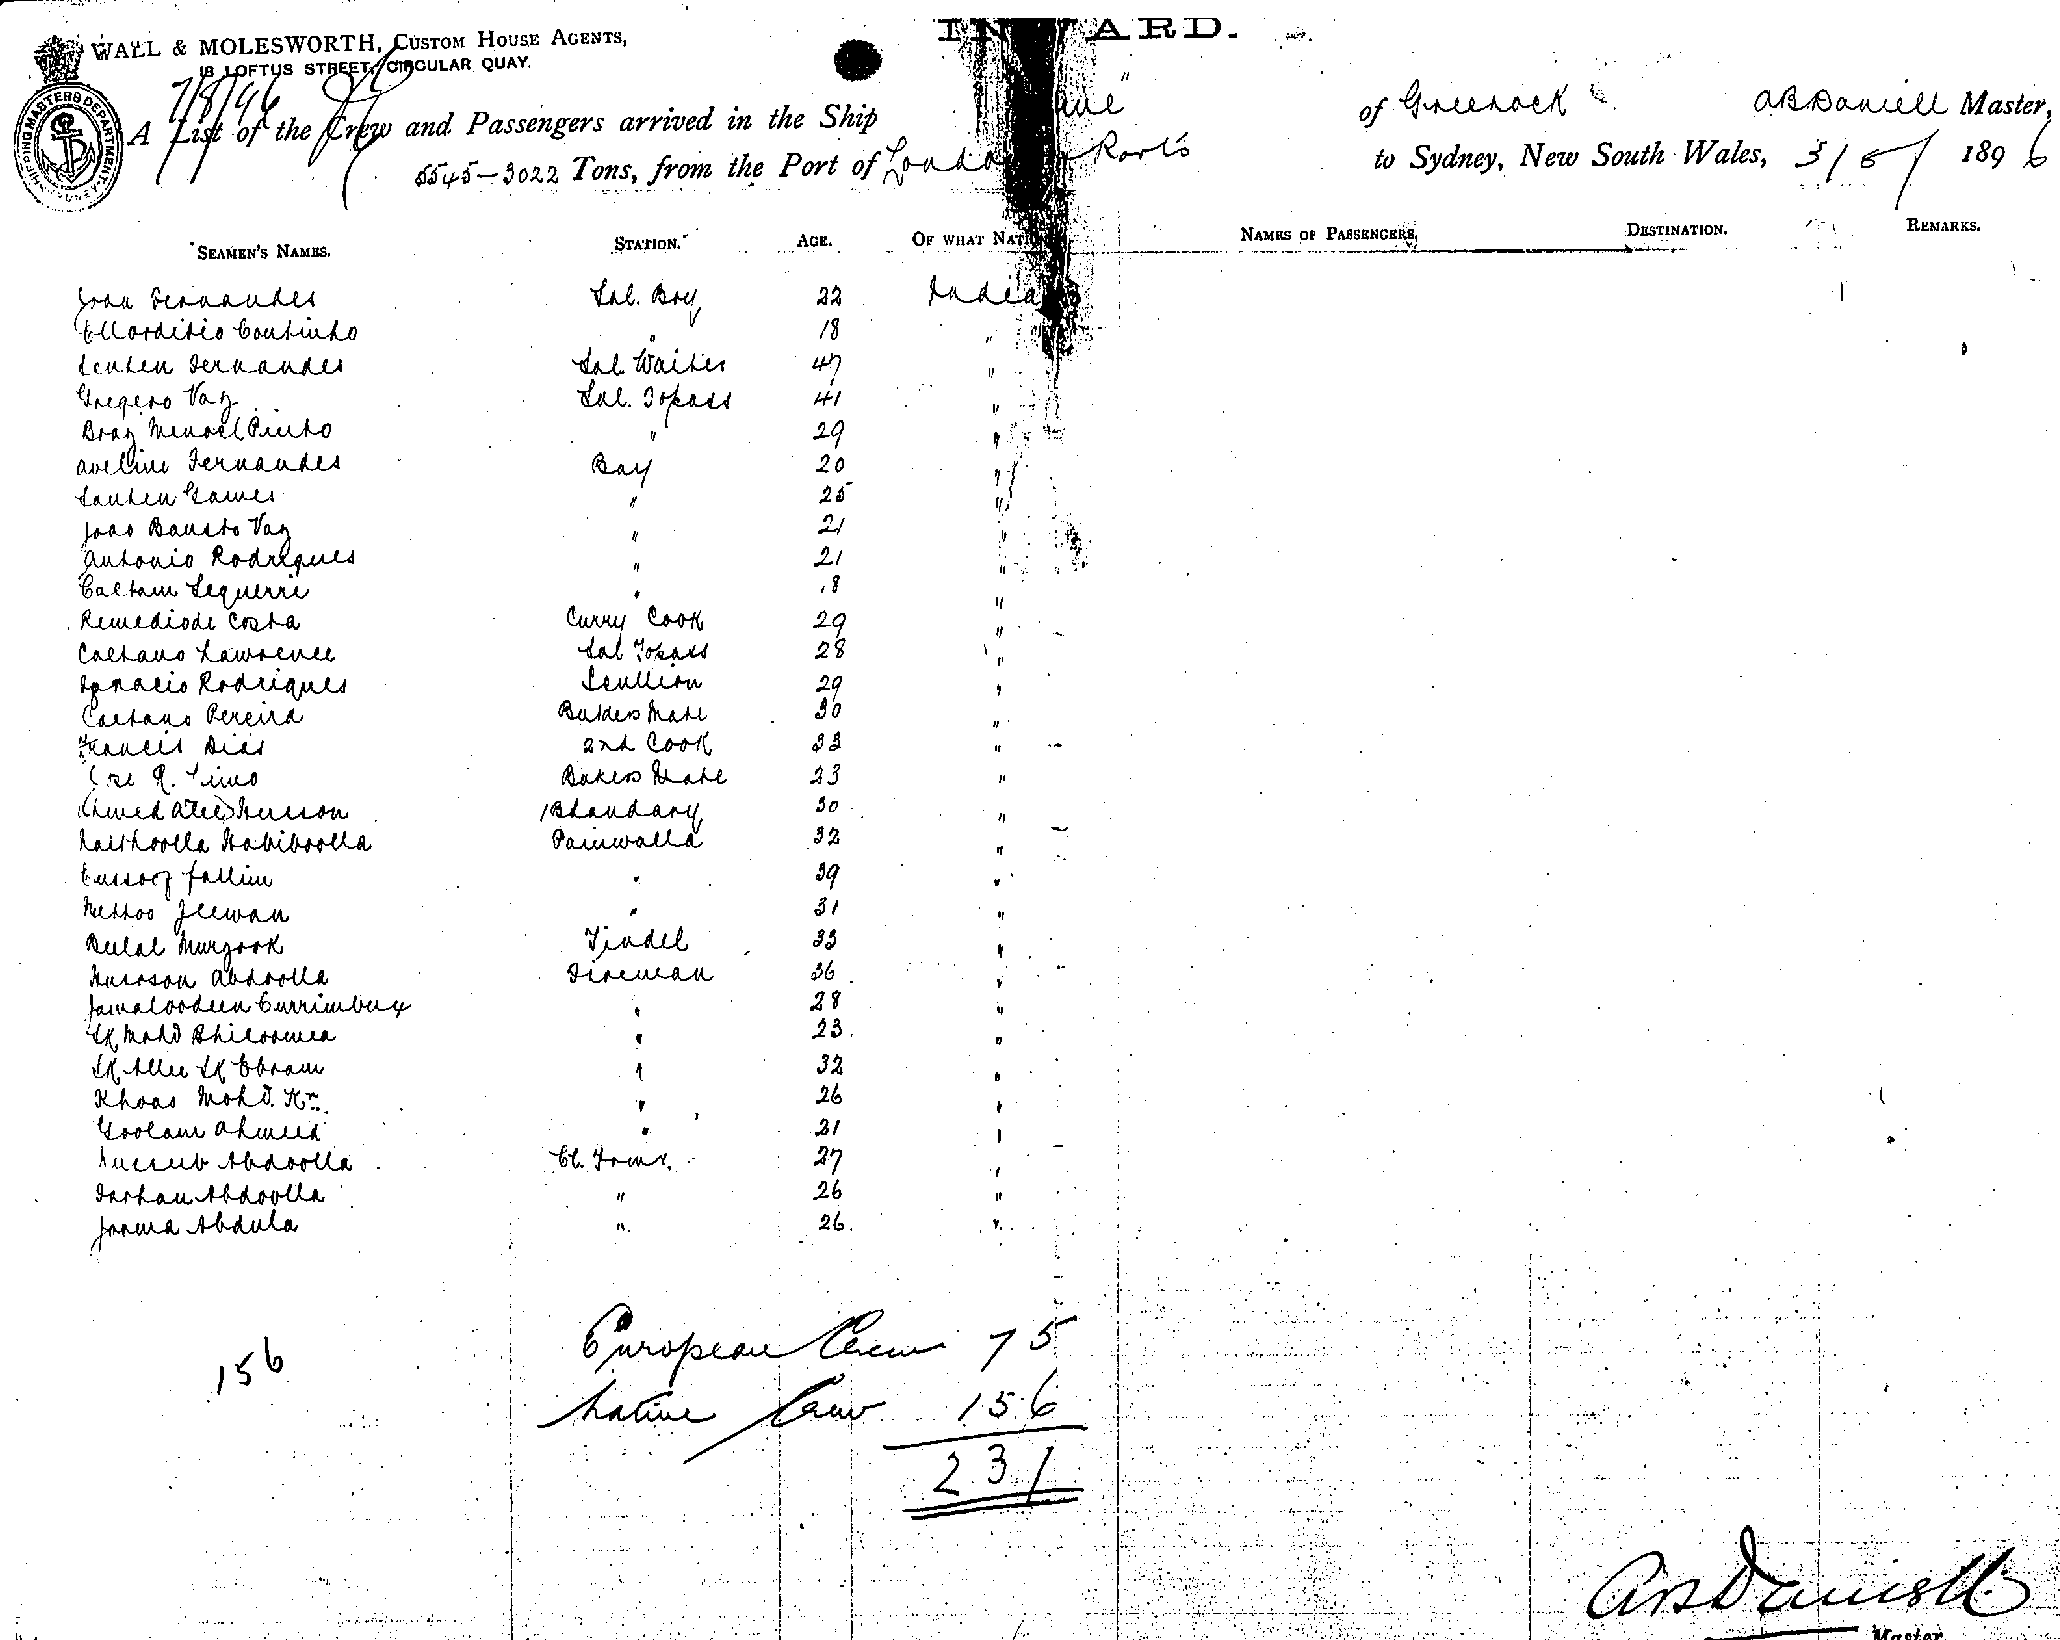 INWARD.
WALL & MOLESWORTH, CUSTOM HOUSE AGENTS,
8 LOFTUS STREET, CIRCULAR QUAY.
7/8/96
SHIPPING MASTERS DEPARTMENT SYDNEY
A List of the Crew and Passengers arrived in the Ship of Greenock ABDaniell Master,
5545-3022 Tons, from the Port of London Ports to Sydney, New South Wales, 3/8/ 1896
SEAMEN'S NAMES. STATION. AGE. OF WHAT NATION NAMES OF PASSENGERS. DESTINATION. REMARKS.
Joan Fernandes Sal. Boy 22 Indians
Coutinho " 18 "
Fernandes Sal. Waiter 47 "
Gregero Vaz Sal. Topass 41 "
Braz Menoel Pinto " 29 "
Aveline Fernandes Boy 20 "
Santen Gomes " 25 "
Joao Bausto Vaz " 21 "
Antonio Rodrigues " 21 "
Caetam Sequerri " 18 "
Remediode Costa Curry Cook 29 "
Caetano Lawrence Sal Topass 28 "
Ignacio Rodrigues Scullion 29 "
Caetano Pereira Butchers Mate 30 "
Francis Dias 2nd Cook 33 "
Jose R. Bakers Mate 23 "
Ahmed Allee Husson Bhandary 30 "
Habiboolla Paniwalla 32 "
Eussoof Sallim " 39 "
Jeewan " 31 "
Belal Murzook Tindel 33 "
Husson Abdoolla Fireman 36 "
Jamaloodeen Currimbux " 28 "
Sk Mohd " 23 "
Sk Allee Sk Ebram " 32 "
Khoas Mohd. Kn. " 26 "
Goolam Ahmed " 21 "
Abdoolla Cl. Trmr. 27 "
Farhan Abdoolla " 26 "
Jooma Abdula " 26 "
European Crew 75
156
Native Crew 156
231
ABDaniell
Master